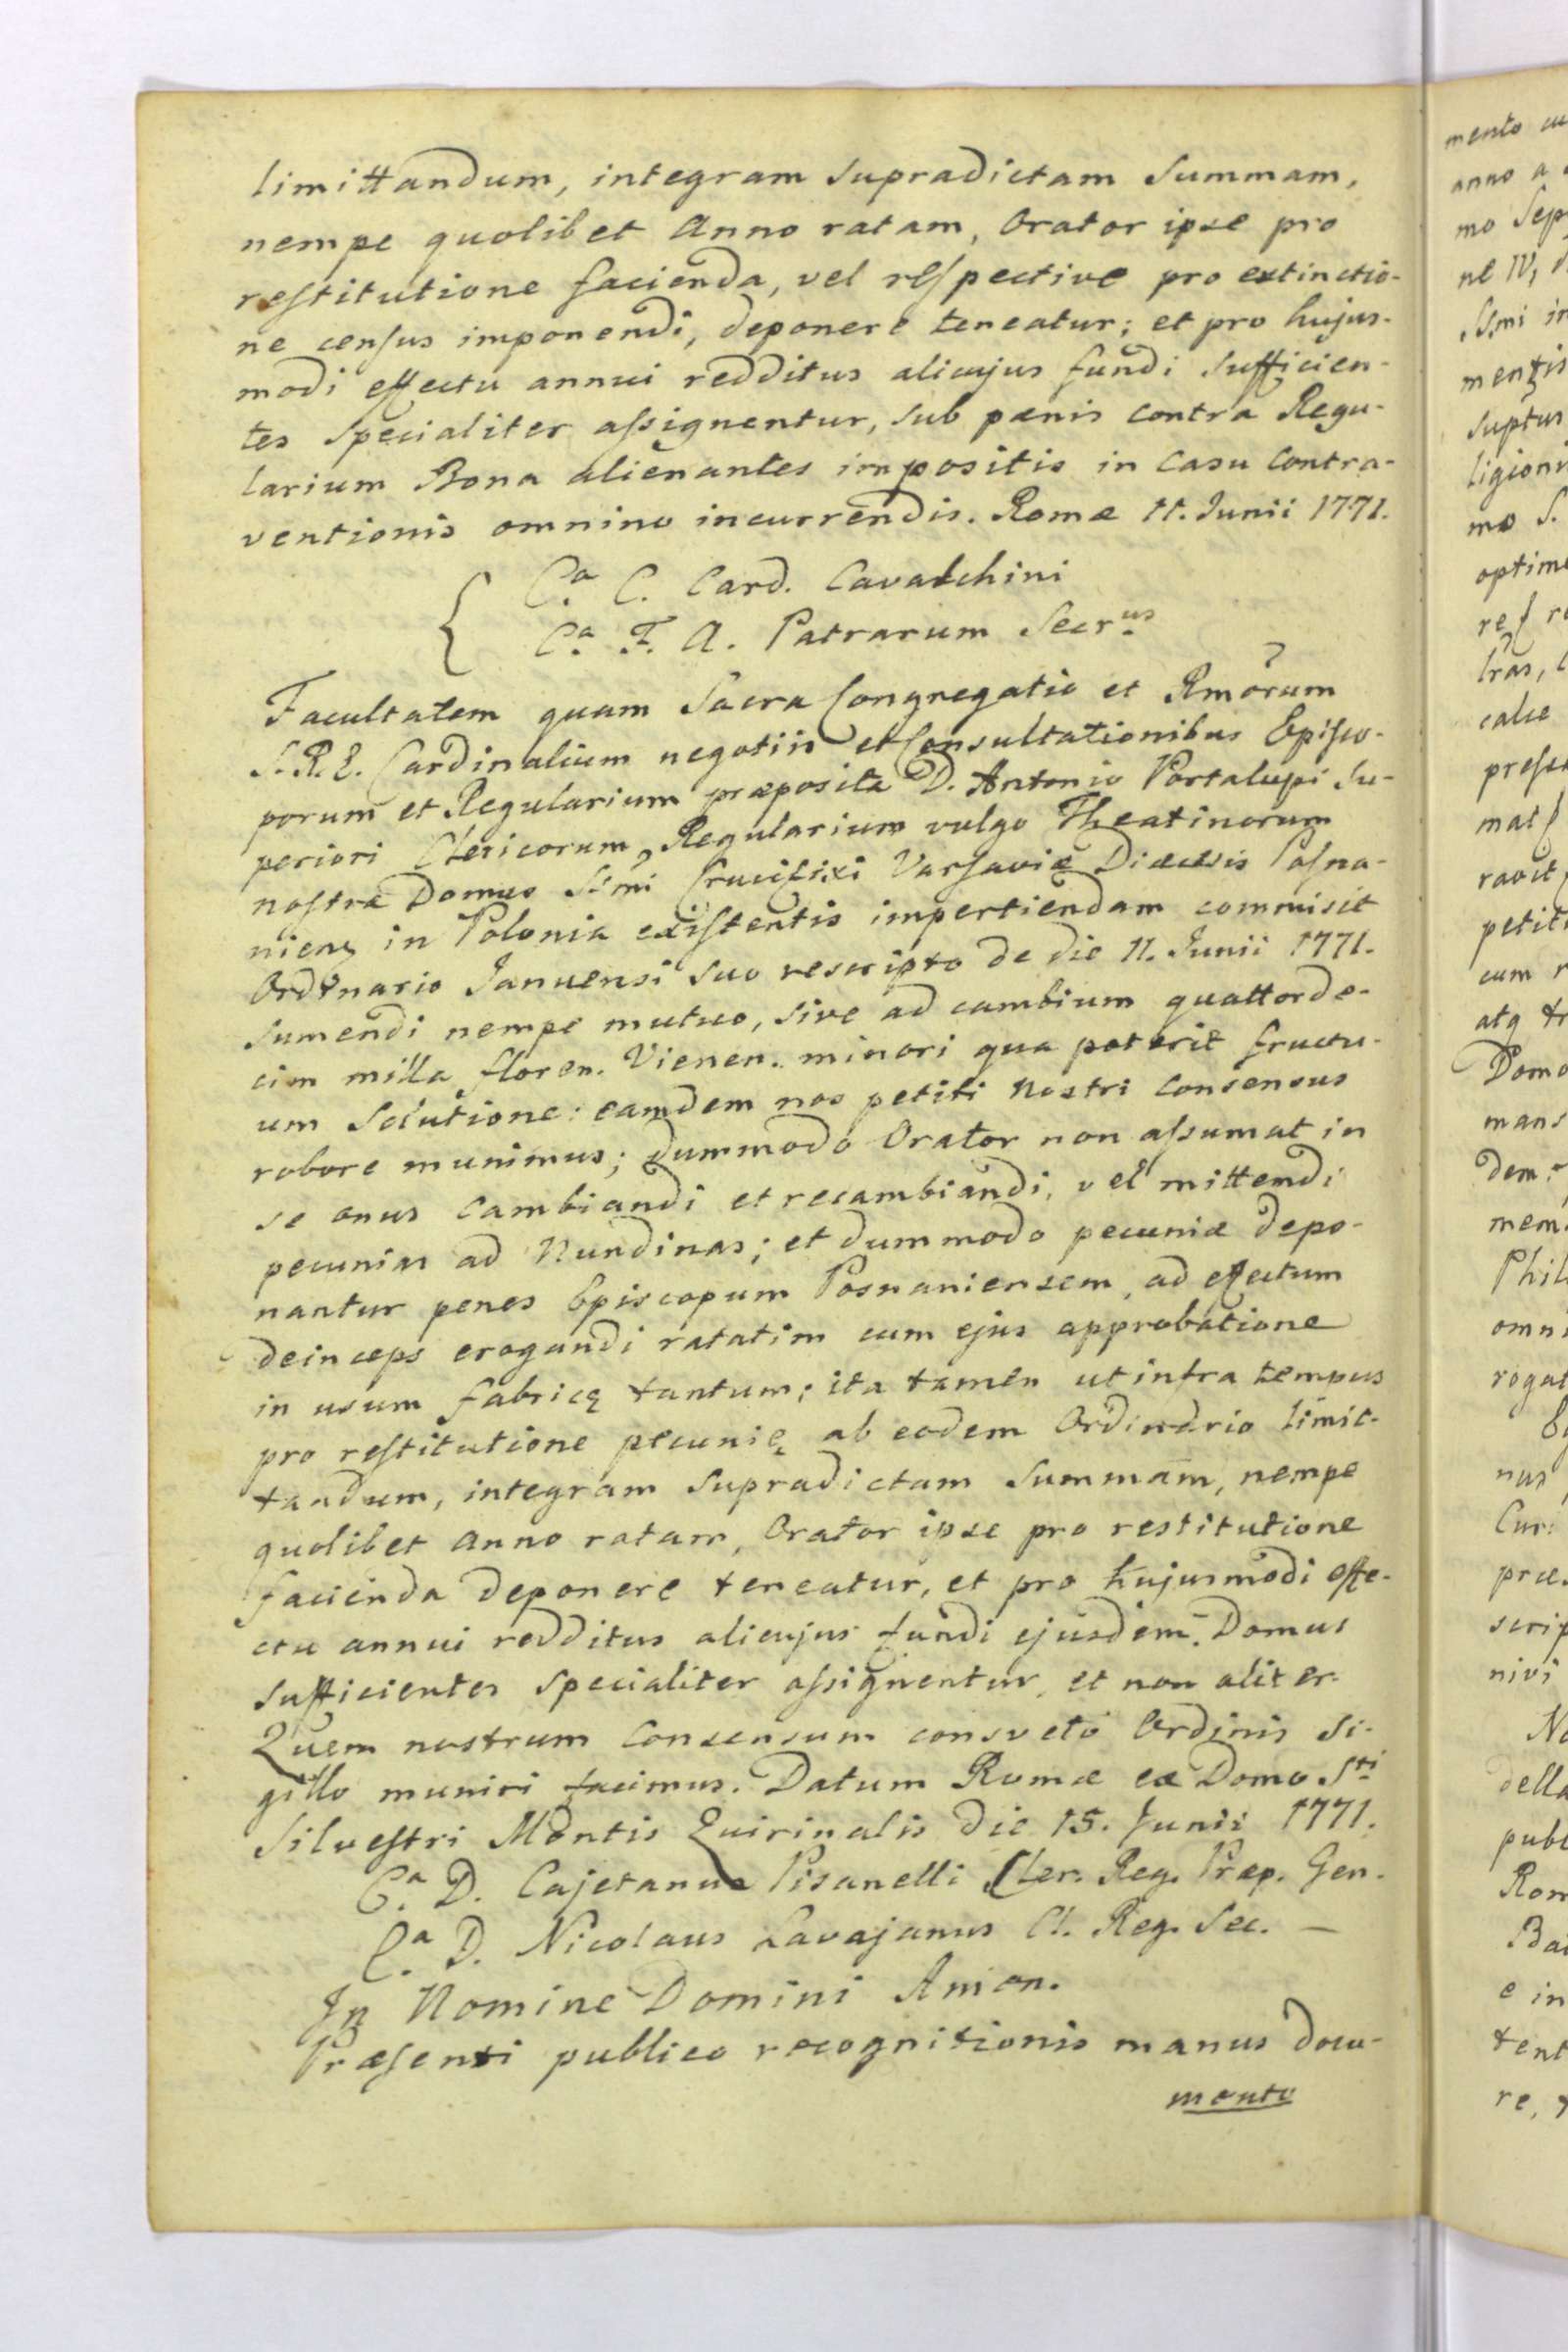 limittandum, integram supradictam Summam,
nempe quolibet Anno ratam, Orator ipse pro
restitutione facienda, vel respective pro extinctio-
ne census imponendi, deponere teneatur; et pro hujus-
modi effectu annui redditus alicujus fundi sufficien-
tes specialiter assignentur, sub pænis contra Regu-
larium Bona alienantes impositis in Casu Contra-
ventionis omnino incurrendis. Romæ 11. Junii 1771.
Ca. C. Card. Cavalchini
Ca. F. A. Patrarum Secrus
Facultatem quam Sacra Congregatio et Rmorum
S. R. E. Cardinalium negotiis et Consultationibus Episco-
porum et Regularium præposita D. Antonio Portalupi Su-
periori Clericorum Regularium vulgo Theatinorum
nostræ Domus SSmi Crucifixi Varsaviæ Diæcesis Posna-
niens in Polonia existentis impertiendam commisit
Ordinario Januensi suo rescripto de die 11. Junii 1771.
sumendi nempe mutuo, sive ad cambium quattorde-
cim milla floren. Vienen. minori qua poterit fructu-
um Solutione: eamdem nos petiti Nostri Consensus
robore munimus; dummodo Orator non assumat in
se onus Cambiandi et recambiandi, vel mittendi
pecunias ad Nundinas; et dummodo pecuniæ depo-
nantur penes Episcopum Posnaniensem, ad effectum
deinceps erogandi ratatim cum ejus approbatione
in usum fabricę tantum; ita tamen ut infra tempus
pro restitutione pecunię ab eodem Ordinario limit-
tandum, integram supradictam Summam, nempe
quolibet Anno ratam, Orator ipse pro restitutione
facienda deponere teneatur, et pro hujusmodi effe-
ctu annui redditus alicujus fundi ejusdem Domus
sufficientes specialiter assignentur, et non aliter.
Quem nostrum Consensum consveto Ordinis si-
gillo muniri facimus. Datum Romæ ex Domo Sti
Silvestri Montis Quirinalis die 15. Junii 1771.
Ca. D. Cajetanus Pisanelli Cler. Reg. Præp. Gen.
Ca. D. Nicolaus Lavajanus Cl. Reg. Sec. —
In Nomine Domini Amen.
Præsenti publico recognitionis manus docu-
mento